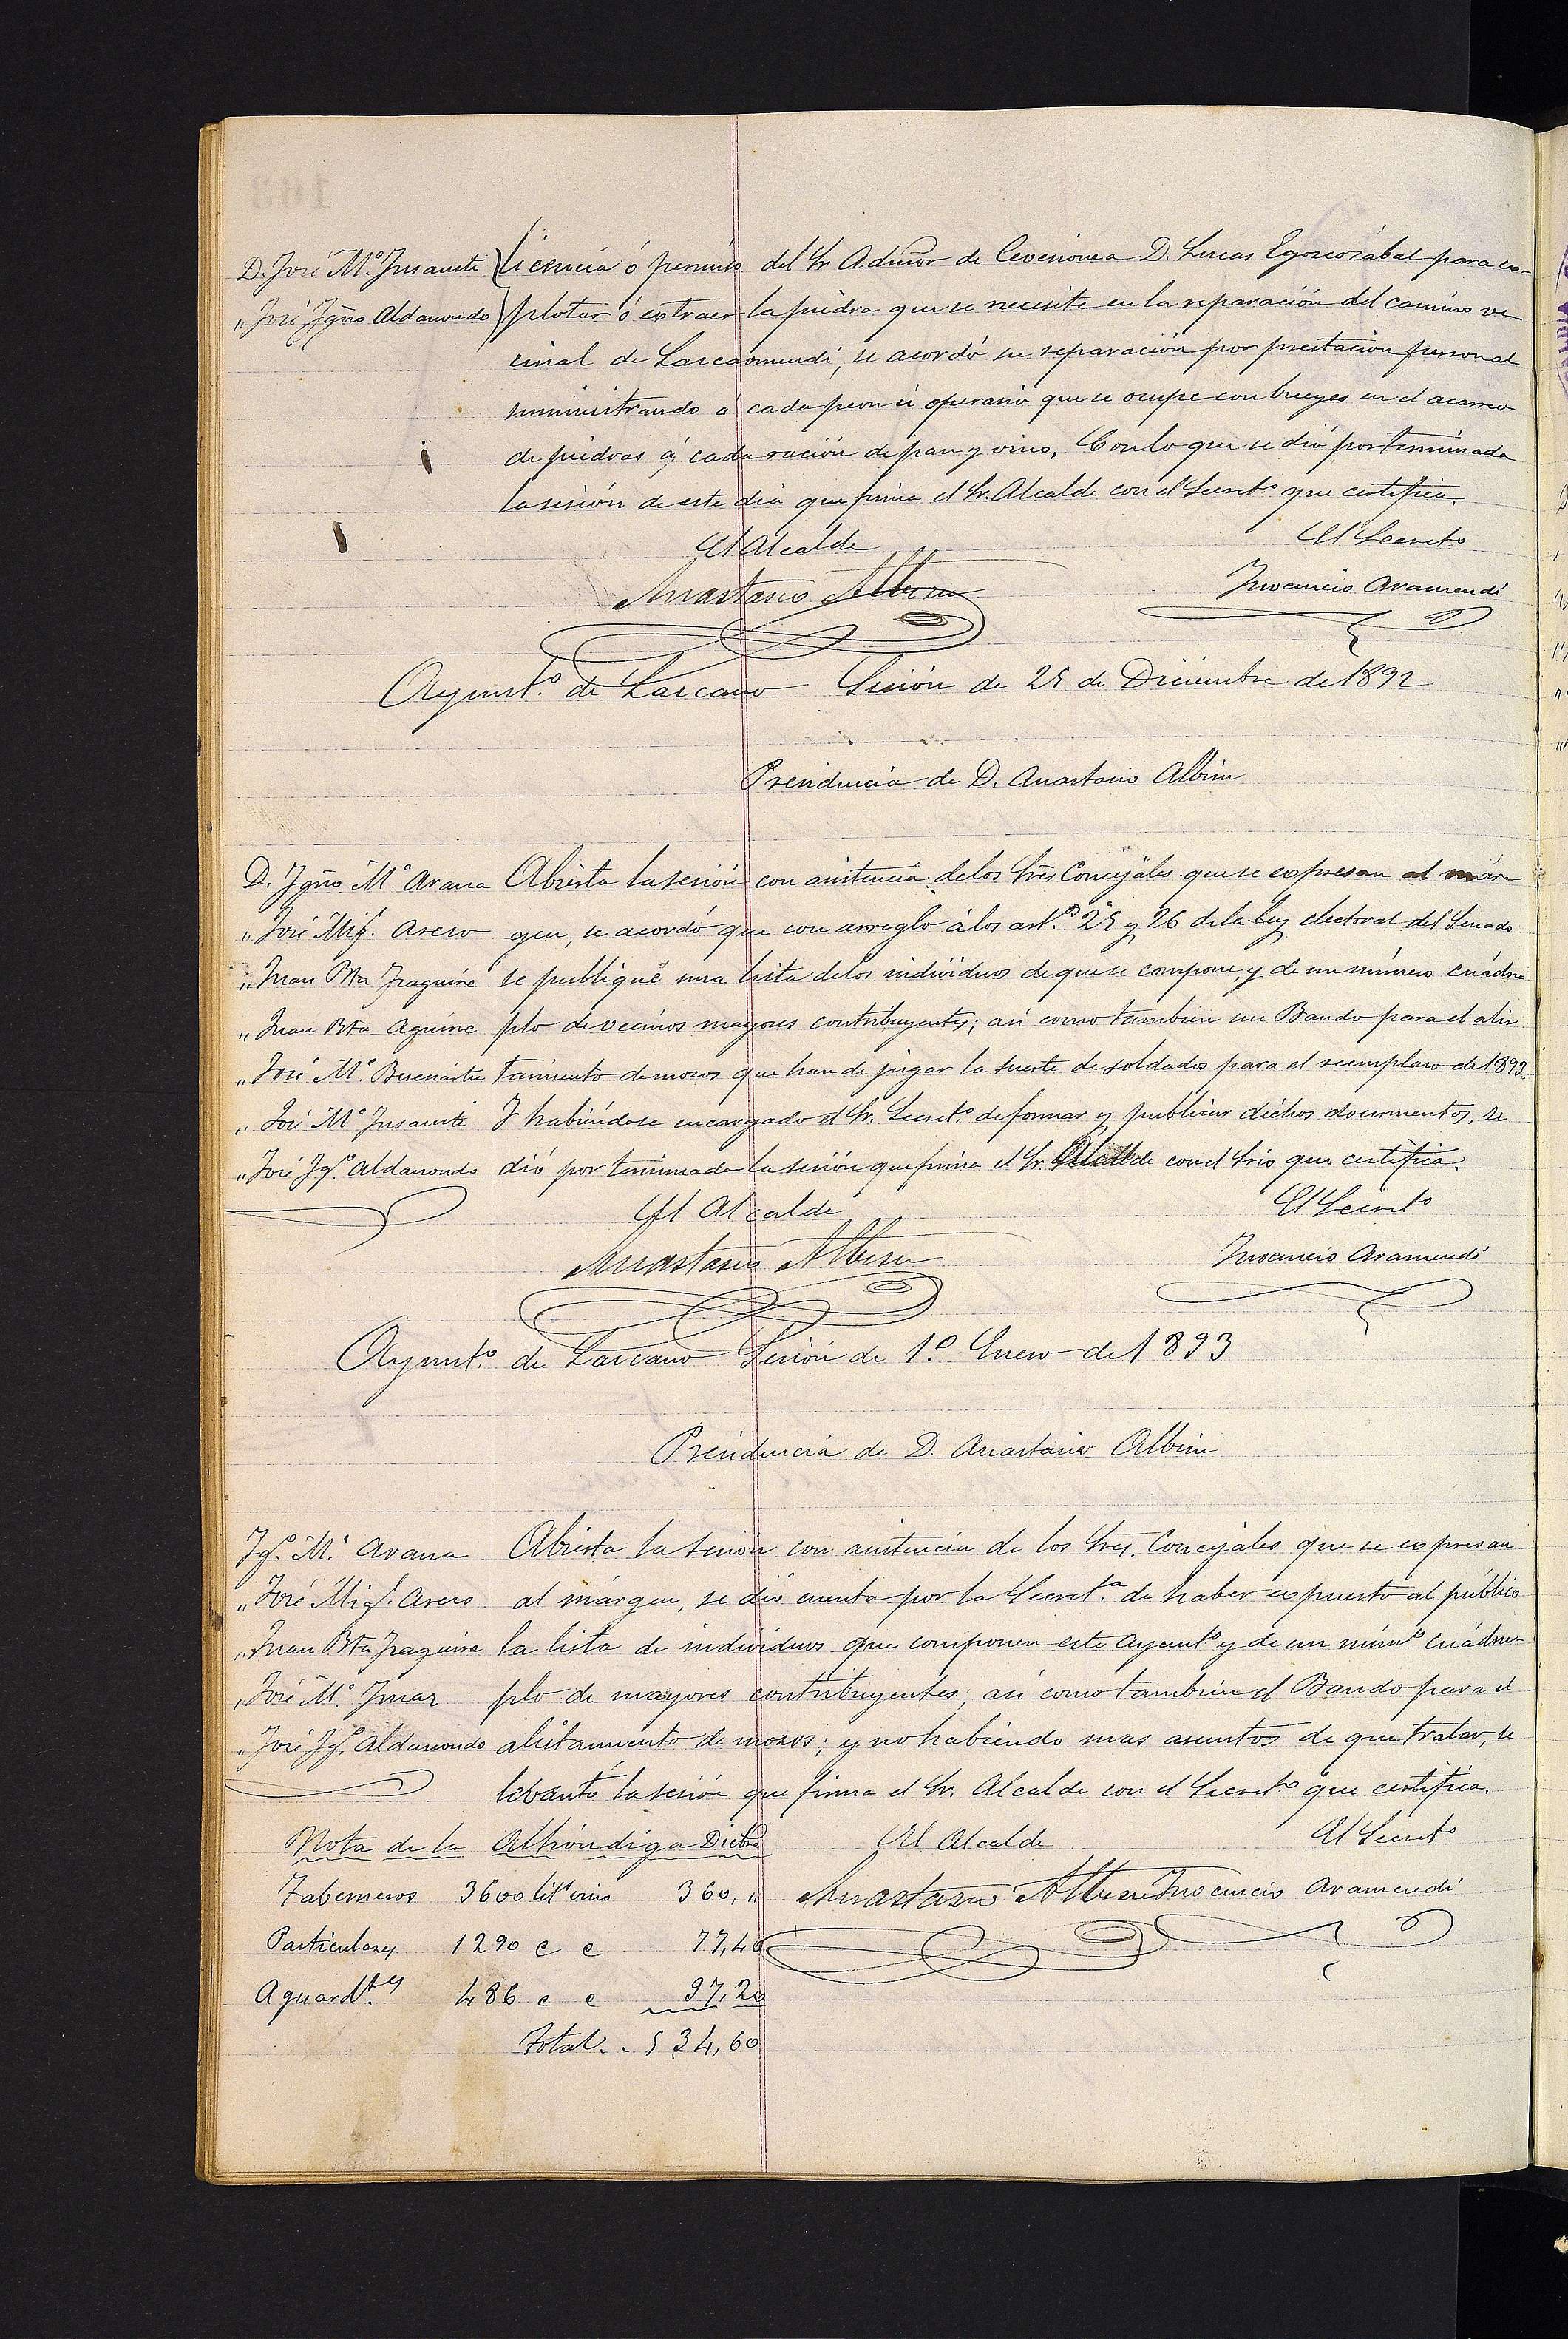 D. José Mª. Insausti } licencia ó permiso del Sr Admor de Cevericnea D. Lucas Egoscozábal para es-
„ José Jgno Aldasoro } plotar ó extraer la piedra que se necesite en la reparación del camino ve
cinal de Lazcaomendi, se acordó su reparación por prestación personal
suministrando á cada peon ú operario que se ocupe con bueyes en el acarreo
de piedras á cada ración de pan y vino, Con lo que se dió por terminada
la sesión de este dia que firma el Sr. Alcalde con el Secretº que certifica.
El Alcalde El Secretº
Anastasio Albisu Inocencio Aramendi
Ayuntº. de Lazcano Sesión de 25 de Diciembre de 1892
Presidencia de D. Anastasio Albisu
D. Jgno Mª Arana Abierta la sesión con asistencia de los Sres Concejales que se expresan al már-
„ José Migl. Asero gen, se acordó que con arreglo á los art.os 25 y 26 de la Ley electoral del Senado
„ Juan Bta Izaguirre se publique una lista de los individuos de que se compone, y de un número cuádru
„ Juan Bta Aguirre plo de vecinos mayores contribuyentes; asi como tambien un Bando para el alis
„ José Mª. tamiento de mozos que han de jugar la suerte de soldados para el reemplazo de 1893.
„ José Mª Insausti Y habiéndose encargado el Sr. Secretº. de formar y publicar dichos documentos, se
„ José Jgº. Aldasoro dió por terminada la sesión que firma el Sr. Alcalde con el Srio que certifica.
El Alcalde El Secretº
Anastasio Albisu Inocencio Aramendi
Ayuntº. de Lazcano Sesión de 1.º Enero de 1893
Presidencia de D. Anastasio Albisu
Jgº. Mª. Arana Abierta la sesión con asistencia de los Sres. Concejales que se expresan
„ José Migl. Asero al márgen, se dió cuenta por la Secretª. de haber expuesto al público
„ Juan Bta Izaguirre la lista de individuos que componen este Ayuntº y de un númº cuádru-
„ José Mª. plo de mayores contribuyentes; asi como tambien el Bando para el
„ José Jgº. Aldasoro alistamiento de mozos; y no habiendo mas asuntos de que tratar, se
levantó la sesión que firma el Sr. Alcalde con el Secretº que certifica.
Nota de la Alhóndiga Dicbre El Alcalde El Secretº
Taberneros 3600 lits vino 360, „ Anastasio Albisu Inocencio Aramendi
Particulares 1290 e e 77,40
Aguardtes. 486 e e 97,20
Total. . 534,60